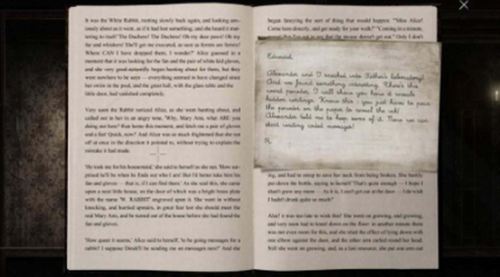 It was the White Rabbit, trotting slowly back again, and looking anx-
iously about as it went, as if it had lost something; and she heard it mut-
tering to itself 'The Duchess! The Duchess! Oh my dear paws! Oh my
fur and whiskers! She'll get me executed, as sure as ferrets are ferrets!
Where CAN I have dropped them, I wonder?' Alice guessed in a
moment that it was looking for the fan and the pair of white kid gloves,
and she very good-naturedly began hunting about for them, but they
were nowhere to be seen — everything seemed to have changed since
her swim in the pool, and the great hall, with the glass table and the
little door, had vanished completely.
Very soon the Rabbit noticed Alice, as she went hunting about, and
called out to her in an angry tone, 'Why, Mary Ann, what ARE you
doing out here? Run home this moment, and fetch me a pair of gloves
and a fan! Quick, now!' And Alice was so much frightened that she ran
off at once in the direction it pointed to, without trying to explain the
mistake it had made.
'He took me for his housemaid,' she said to herself as she ran. 'How sur-
prised he'll be when he finds out who I am! But I'd better take him his
fan and gloves — that is, if I can find them.' As she said this, she came
upon a neat little house, on the door of which was a bright brass plate
with the name 'W. RABBIT' engraved upon it. She went in without
knocking, and hurried upstairs, in great fear lest she should meet the
real Mary Ann, and be turned out of the house before she had found the
fan and gloves.
'How queer it seems,' Alice said to herself, 'to be going messages for a
rabbit! I suppose Dinah'll be sending me on messages next!' And she
began fancying the sort of thing that would happen: '"Miss Alice!
Come here directly, and get ready for your walk!" "Coming in a minute,
Edward,
Alexander and I sneaked into Father's laboratory!
And we found something interesting. There's this
weird powder, I will show you how it reveals
hidden writings. Know this: you just have to pour
the powder on the paper to reveal the ink!
Alexander told me to keep some of it. Now we can
start sending coded messages!
ing, and had to stoop to save her neck from being broken. She hastily
put down the bottle, saying to herself 'That's quite enough — I hope I
shan't grow any more — As it is, I can't get out at the door — I do wish
I hadn't drunk quite so much!'
Alas! it was too late to wish that! She went on growing, and growing,
and very soon had to kneel down on the floor: in another minute there
was not even room for this, and she tried the effect of lying down with
one elbow against the door, and the other arm curled round her head.
Still she went on growing, and, as a last resource, she put one arm out